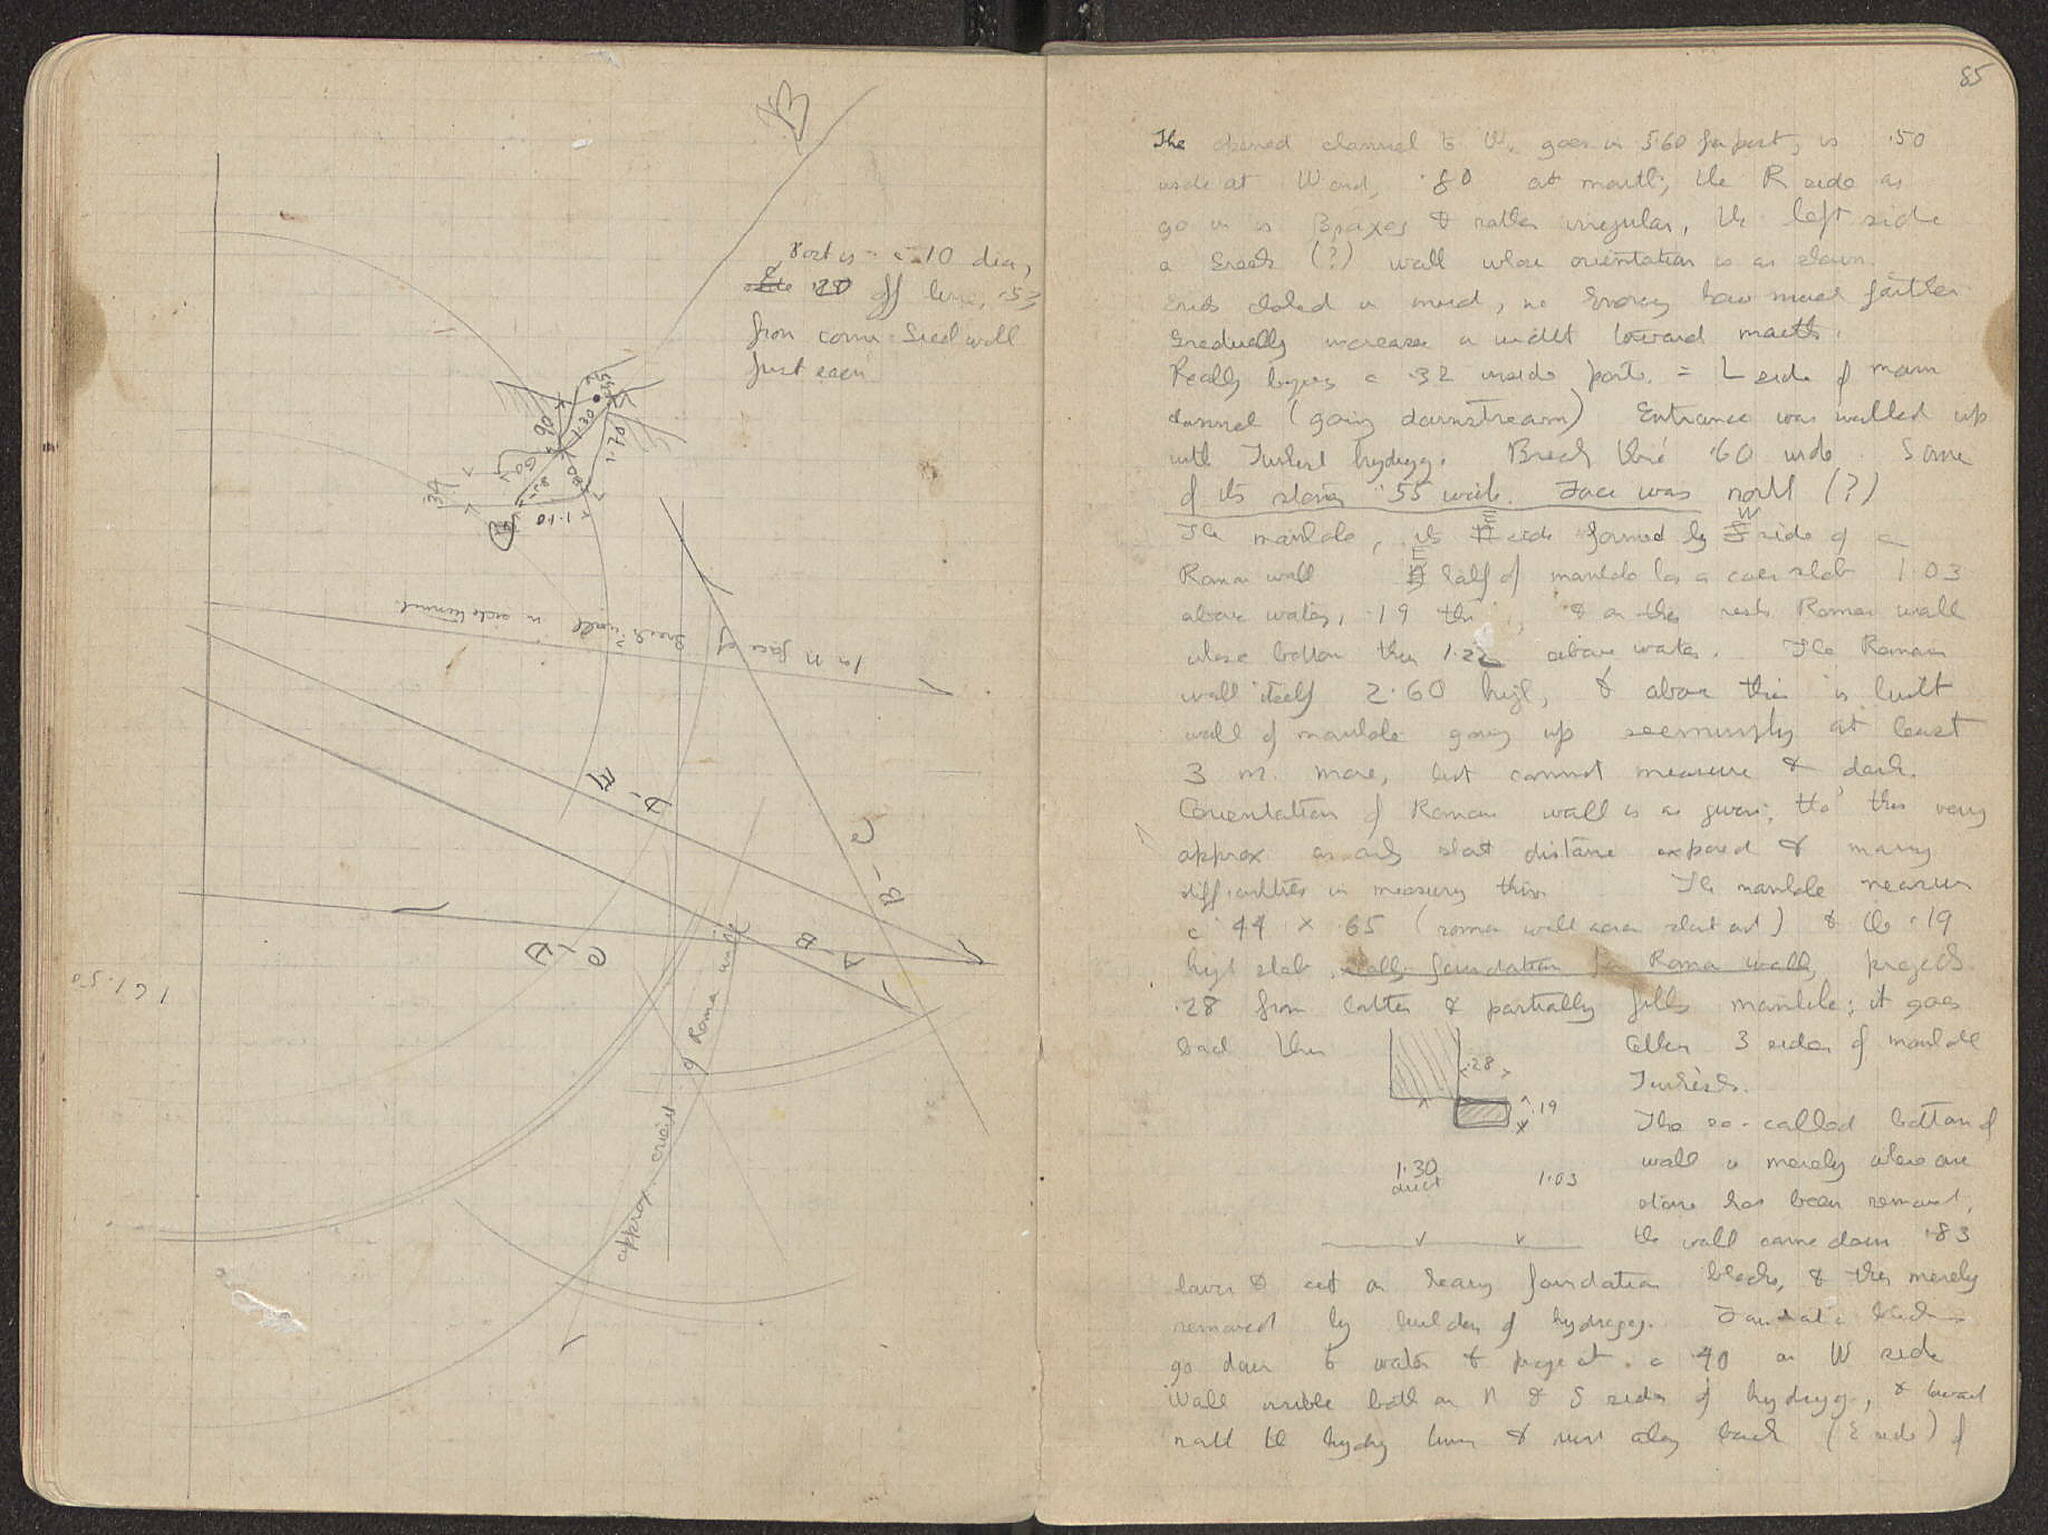 B
Post is c .10 dia,
off line, .53
from corner Greek wall
just seen
.90
1.30
.45
1.70
.60
.85
1.10
.34
1a N face of "Greek" wall in side tunnel
B-C
D-E
A-B
C-D
approx orient of Roman wall
161.50
85
The opened channel to W. goes in 5.60 from post, is .50
wide at W end, .80 at mouth, the R side as
go in is Βραχος & rather irregular, the left side
a Greek (?) wall whose orientation is as shown.
Ends choked in mud, no knowing how much farther
Gradually increases in width toward mouth.
Really begins c .32 inside post = L side of main
channel (going downstream) Entrance was walled up
with Turkish hydragog. Break thru .60 wide. Some
of its stones .55 wide. Face was north (?)
The manhole, its E side formed by W side of a
Roman wall E half of manhole has a cover slab 1.03
above water, .19 thick, & on this rests Roman wall
whose bottom thus 1.22 above water. The Roman
wall itself 2.60 high, & above this is built
wall of manhole going up seemingly at least
3 m. more, but cannot measure & dark.
Orientation of Roman wall is as given, tho' this very
approx as only short distance exposed & many
difficulties in measuring this. The manhole measures
c .44 × .65 (Roman wall seen short on) & the .19
high slab, really foundation for Roman wall, projects
.28 from latter & partially fills manhole; it goes
back thus
Other 3 sides of manhole
Turkish.
.28
.19
1.30
duct
1.03
The so-called bottom of
wall is merely where one
stone has been removed,
the wall came down .83
lower & set on heavy foundation blocks, & this merely
removed by builders of hydragog. Foundation blocks
go down to water & project c .40 on W side
Wall visible both on N & S sides of hydragog, & toward
north the hydrag turns & runs along back (E side) of